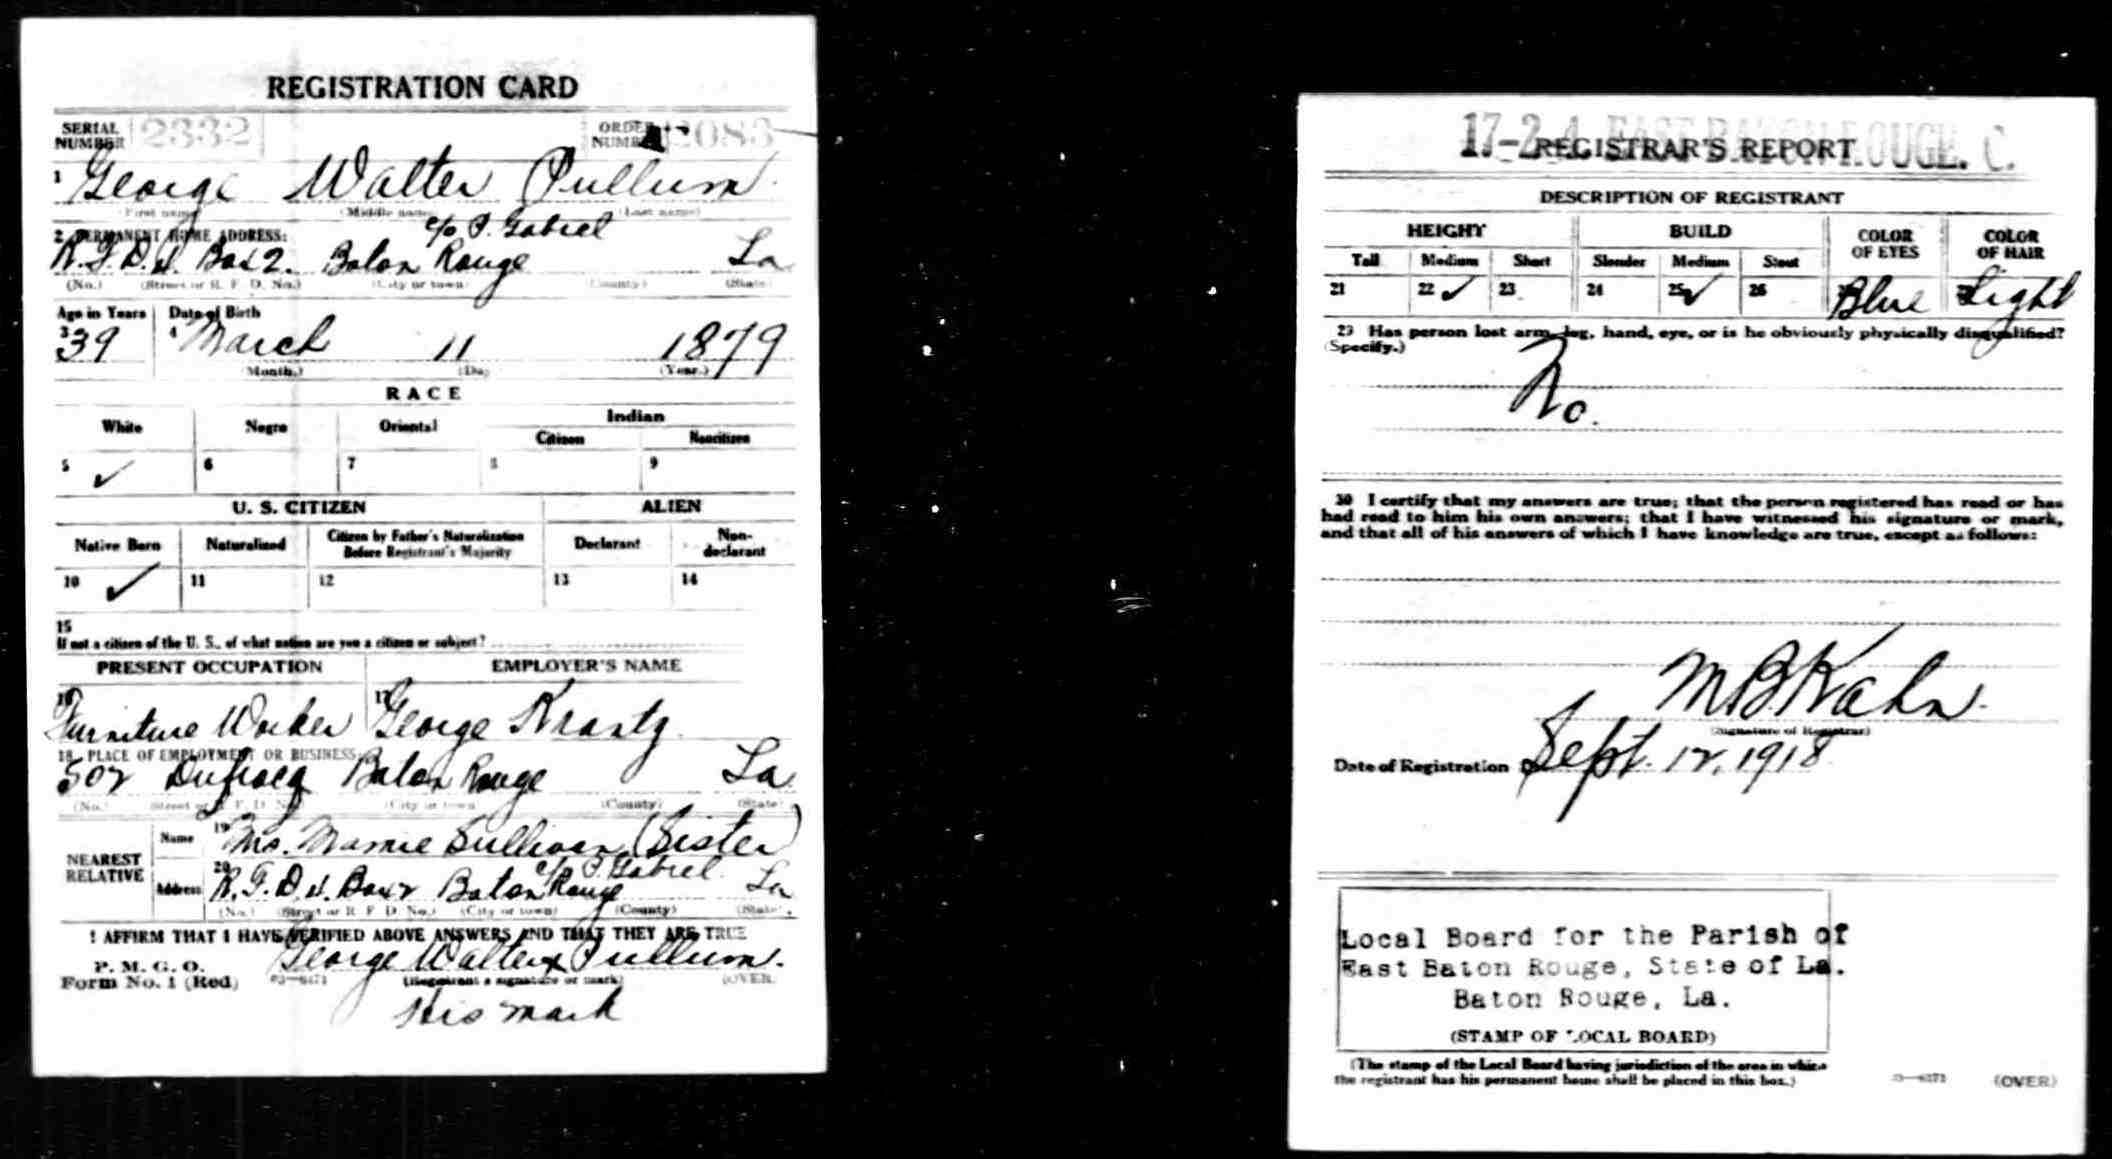 REGISTRATION CARD
SERIAL NUMBER 2332 ORDER NUMBER A 2083
1 George Walter Pullum
(First name) (Middle name) (Last name)
2 PERMANENT HOME ADDRESS: c/o P. Gabriel
R.F.D. Box 2. Baton Rouge La
(No.) (Street or R. F. D. No.) (City or town) (County) (State)
Age in Years Date of Birth
3 39 4 March 11 1879
(Month.) (Day (Year.)
RACE
White Negro Oriental Indian
Citizen Noncitizen
5 ✓ 6 7 8 9
U. S. CITIZEN ALIEN
Native Born Naturalized Citizen by Father's Naturalization Before Registrant's Majority Declarant Non-declarant
10 ✓ 11 12 13 14
15
If not a citizen of the U. S., of what nation are you a citizen or subject?
PRESENT OCCUPATION EMPLOYER'S NAME
16 Furniture Worker 17 George Krantz
18 PLACE OF EMPLOYMENT OR BUSINESS:
502 Dufrocq Baton Rouge La
(No.) (Street or R. F. D. No.) (City or town (County) (State)
NEAREST RELATIVE
Name 19 Mrs. Mamie Sullivan (Sister)
c/o P. Gabriel
Address 20 R.F.D. Box 2 Baton Rouge La
(No.) (Street or R F D. No.) (City or town) (County) (State)
I AFFIRM THAT I HAVE VERIFIED ABOVE ANSWERS AND THAT THEY ARE TRUE
P. M. G. O.
Form No. 1 (Red) George Walter x Pullum.
03—6171 (Registrant's signature or mark) (OVER)
His mark
17-2-4 EAST BATON ROUGE. C.
REGISTRAR'S REPORT
DESCRIPTION OF REGISTRANT
HEIGHT BUILD COLOR OF EYES COLOR OF HAIR
Tall Medium Short Slender Medium Stout
21 22 ✓ 23 24 25 ✓ 26 Blue Light
29 Has person lost arm, leg, hand, eye, or is he obviously physically disqualified?
(Specify.)
No.
30 I certify that my answers are true; that the person registered has read or has
had read to him his own answers; that I have witnessed his signature or mark,
and that all of his answers of which I have knowledge are true, except as follows:
M B Kahn.
(Signature of Registrar)
Date of Registration Sept. 12, 1918
Local Board for the Parish of
East Baton Rouge, State of La.
Baton Rouge, La.
(STAMP OF LOCAL BOARD)
(The stamp of the Local Board having jurisdiction of the area in which
the registrant has his permanent home shall be placed in this box.)
03—6171 (OVER)